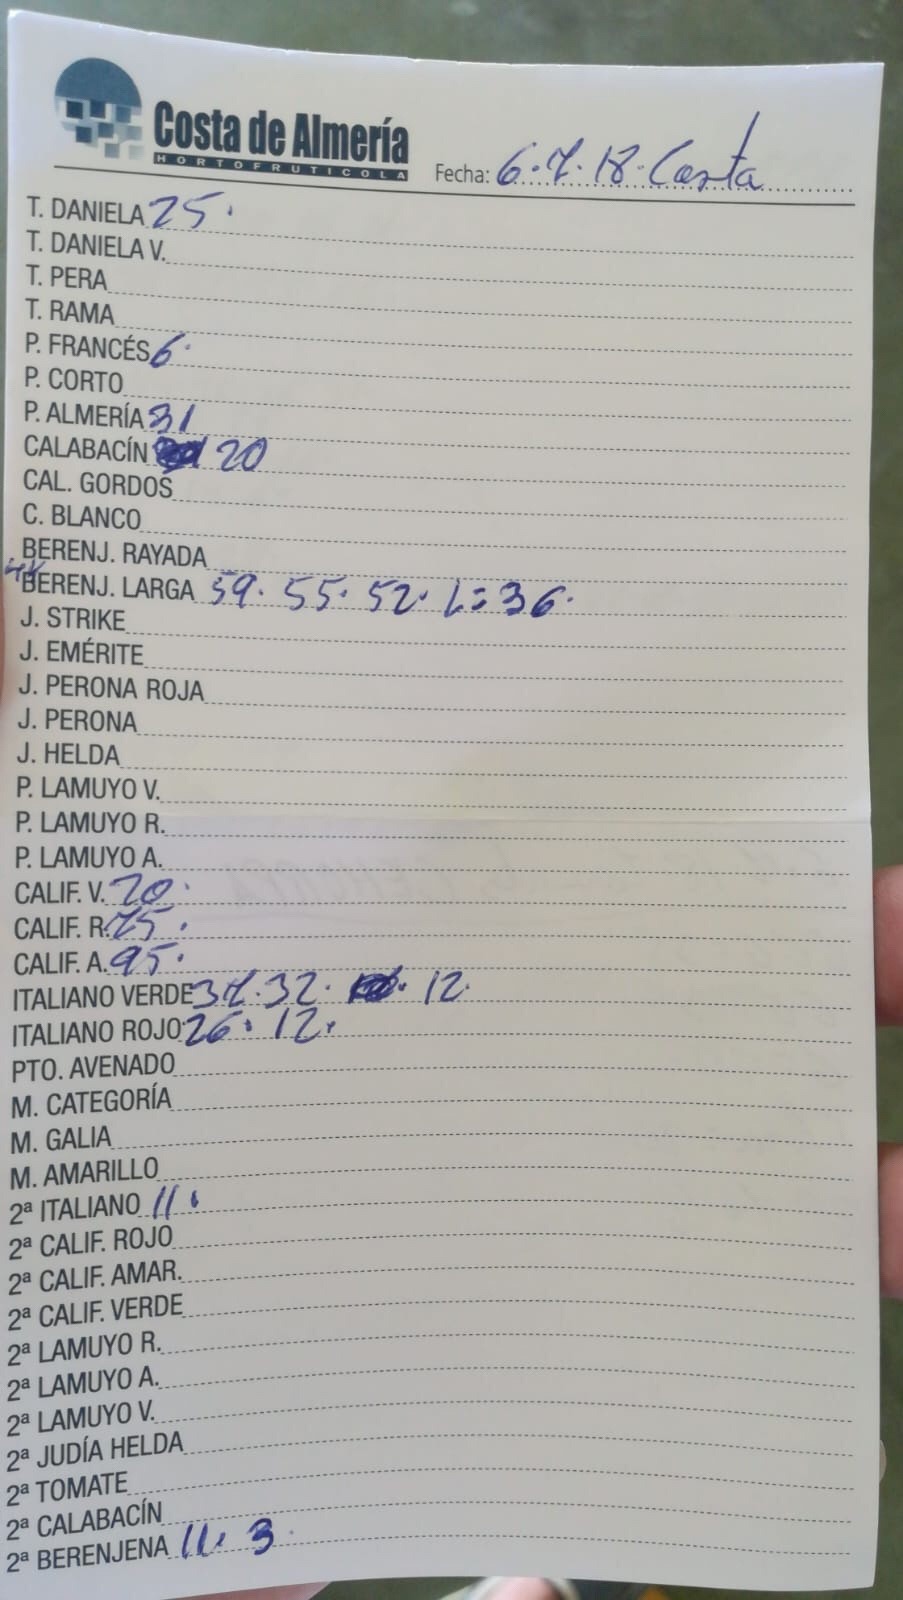 Costa de Almería
HORTOFRUTICOLA
Fecha: 6.7.18. Costa
T. DANIELA 25.
T. DANIELA V.
T. PERA
T. RAMA
P. FRANCÉS 6.
P. CORTO
P. ALMERÍA 31
CALABACÍN 20
CAL. GORDOS
C. BLANCO
BERENJ. RAYADA
BERENJ. LARGA 59. 55. 52. L=36.
J. STRIKE
J. EMÉRITE
J. PERONA ROJA
J. PERONA
J. HELDA
P. LAMUYO V.
P. LAMUYO R.
P. LAMUYO A.
CALIF. V. 70.
CALIF. R. 75.
CALIF. A. 95.
ITALIANO VERDE 37. 32. 12.
ITALIANO ROJO 26. 12.
PTO. AVENADO
M. CATEGORÍA
M. GALIA
M. AMARILLO
2ª ITALIANO 11.
2ª CALIF. ROJO
2ª CALIF. AMAR.
2ª CALIF. VERDE
2ª LAMUYO R.
2ª LAMUYO A.
2ª LAMUYO V.
2ª JUDÍA HELDA
2ª TOMATE
2ª CALABACÍN
2ª BERENJENA 11. 3.